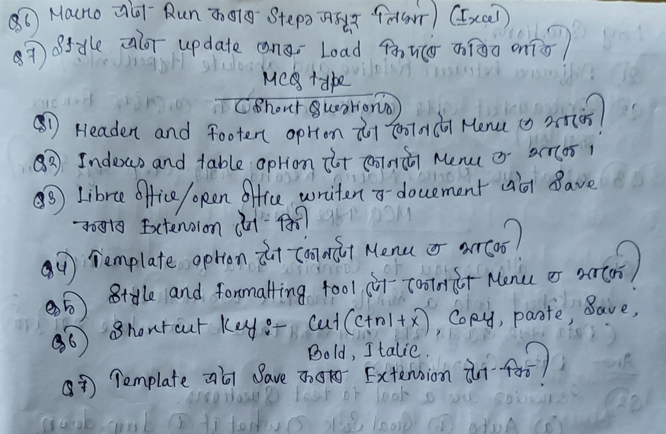 Q6) Macro এটা Run কৰাৰ Steps সমূহ লিখা) (Excel)
Q7) Style এটা update আৰু Load কিদৰে কৰিব পাৰি?
MCQ type
(Short Questions)
Q1) Header and Footer option টো কোনটো Menu ত থাকে?
Q2) Indexes and table option টো কোনটো Menu ত থাকে।
Q3) Libre office/open office writer ৰ document এটা Save
কৰাৰ Extension টো কি?
Q4) Template option টো কোনটো Menu ত থাকে?
Q5) Style and formatting tool টো কোনটো Menu ত থাকে?
Q6) Shortcut Key :- Cut (Ctrl+x), Copy, paste, Save,
Bold, Italic.
Q7) Template এটা Save কৰাৰ Extension টো কি?